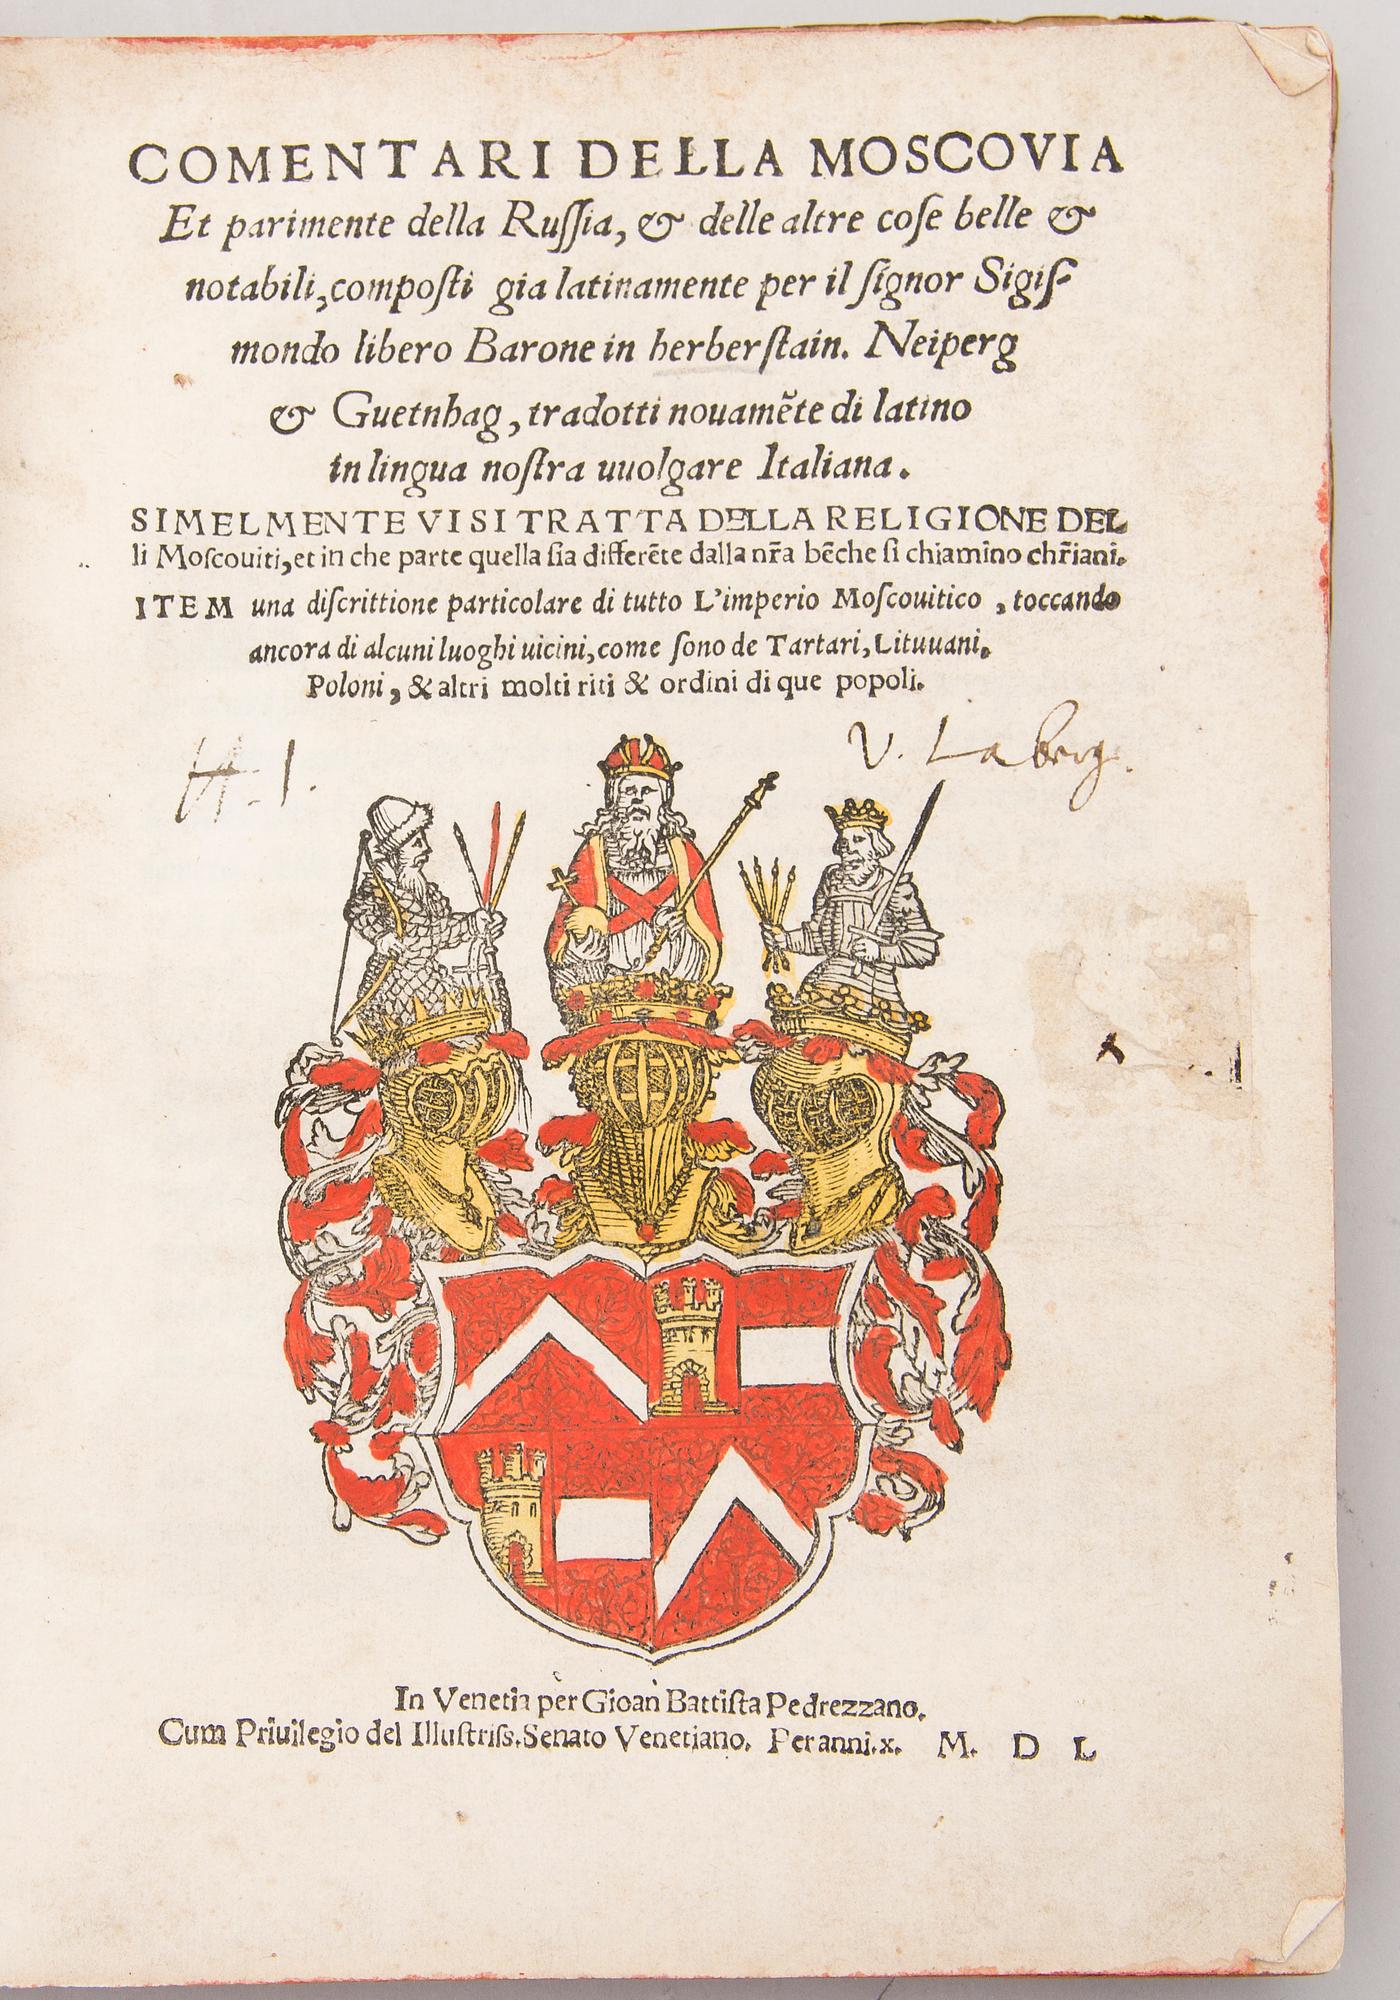 COMENTARI DELLA MOSCOVIA
Et parimente della Ruſſia, & delle altre coſe belle &
notabili, compoſti gia latinamente per il ſignor Sigiſ-
mondo libero Barone in herberſtain. Neiperg
& Guetnhag, tradotti nouamẽte di latino
in lingua noſtra uuolgare Italiana.
SIMELMENTE VI SI TRATTA DELLA RELIGIONE DEL
li Moſcouiti, et in che parte quella ſia differẽte dalla nr̃a bẽche ſi chiamino chr̃iani.
ITEM una diſcrittione particolare di tutto L'imperio Moſcouitico, toccando
ancora di alcuni luoghi uicini, come ſono de Tartari, Lituuani.
Poloni, & altri molti riti & ordini di que popoli.
H. 1.
V. Laberg.
In Venetia per Gioan Battiſta Pedrezzano.
Cum Priuilegio del Illuſtriſs. Senato Venetiano. Per anni. x. M. D L